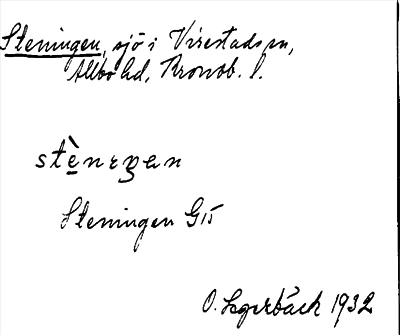 Steningen, sjö i Virestads sn,
Allbo hd, Kronob. l.
stènıŋɡen
Steningen G15
O. Lagerbäck 1932